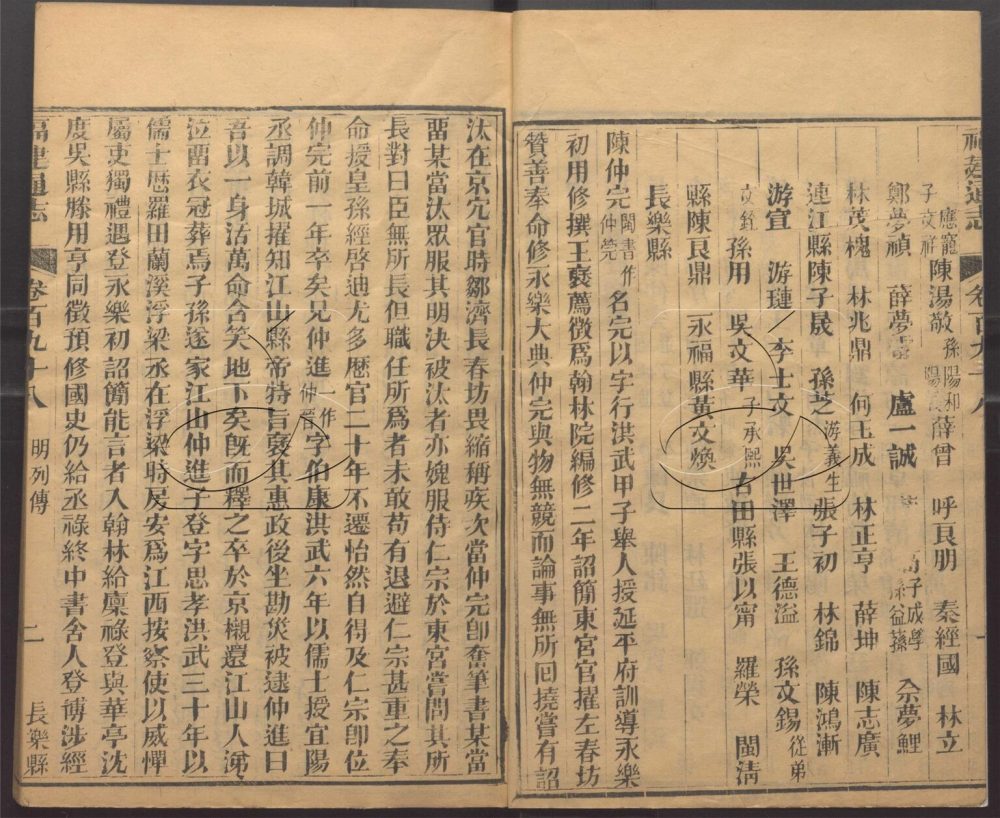 福建通志 卷百九十八
子文祥
應寵 陳湯敬 孫陽和 薛曾 呼良朋 秦經國 林立
鄭夢禎 薛夢雷 盧一誠 子成學 孫益蓀 佘夢鯉
林茂槐 林兆鼎 何玉成 林正亨 薛坤 陳志廣
連江縣陳子晟 孫芝 游義生 張子初 林錦 陳鴻漸
游宜 游璉 李士文 吳世澤 王德溢 孫文錫 從弟
文銓 孫用 吳文華 子承熙 古田縣張以甯 羅榮 閩清
縣陳良鼎 永福縣黃文煥
長樂縣
陳仲完 閩書作仲筦 名完以字行洪武甲子舉人授延平府訓導永樂
初用修撰王褒薦徵爲翰林院編修二年詔簡東宮官擢左春坊
贊善奉命修永樂大典仲完與物無競而論事無所回撓嘗有詔
汰在京宂官時鄒濟長春坊畏縮稱疾次當仲完卽奮筆書某當
畱某當汰眾服其明決被汰者亦媿服侍仁宗於東宮嘗問其所
長對曰臣無所長但職任所爲者未敢苟有退避仁宗甚重之奉
命授皇孫經啓迪尤多歷官二十年不遷怡然自得及仁宗卽位
仲完前一年卒矣兄仲進 一作仲晉 字伯康洪武六年以儒士授宜陽
丞調韓城擢知江山縣帝特旨褒其惠政後坐勘災被逮仲進曰
吾以一身活萬命含笑地下矣旣而釋之卒於京櫬還江山人涕
泣畱衣冠葬焉子孫遂家江山仲進子登字思孝洪武三十年以
儒士歷羅田蘭溪浮梁丞在浮梁時房安爲江西按察使以威憚
屬吏獨禮遇登永樂初詔簡能言者入翰林給廩祿登與華亭沈
度吳縣滕用亨同徵預修國史仍給丞祿終中書舍人登博涉經
福建通志 卷百九十八 明列傳 二 長樂縣